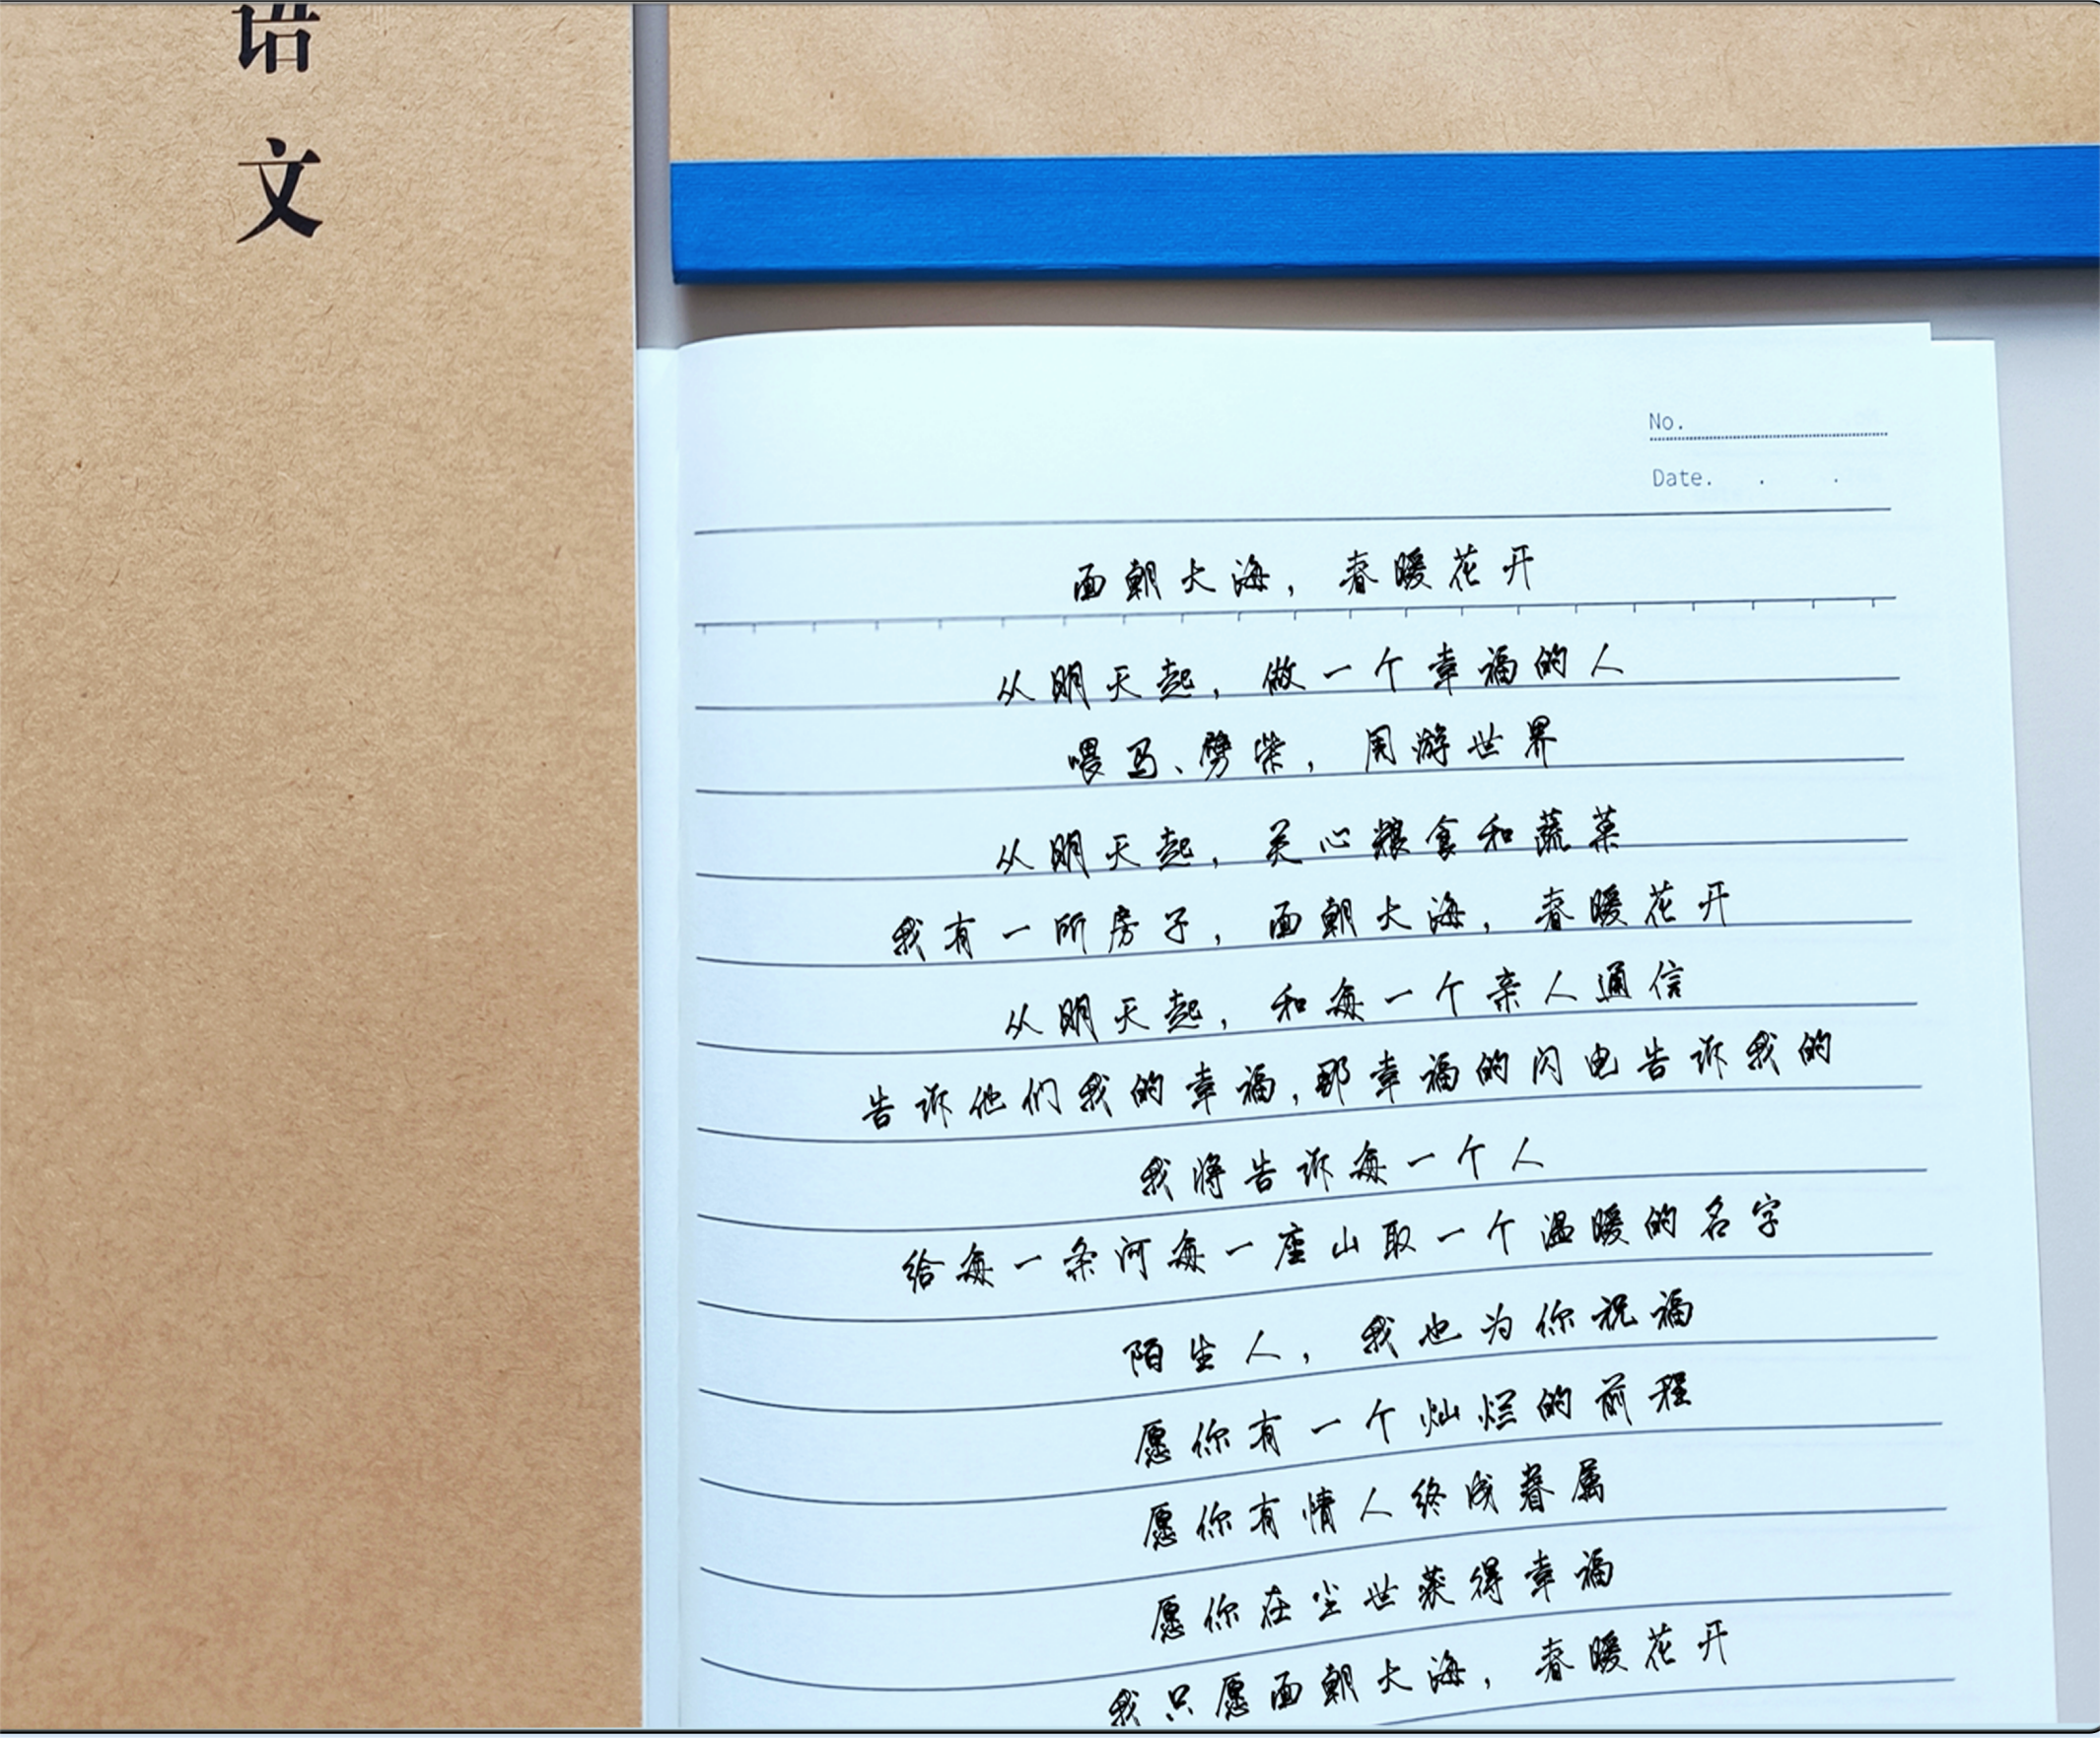 语
文
No.
Date. . .
面朝大海，春暖花开
从明天起，做一个幸福的人
喂马、劈柴，周游世界
从明天起，关心粮食和蔬菜
我有一所房子，面朝大海，春暖花开
从明天起，和每一个亲人通信
告诉他们我的幸福，那幸福的闪电告诉我的
我将告诉每一个人
给每一条河每一座山取一个温暖的名字
陌生人，我也为你祝福
愿你有一个灿烂的前程
愿你有情人终成眷属
愿你在尘世获得幸福
我只愿面朝大海，春暖花开